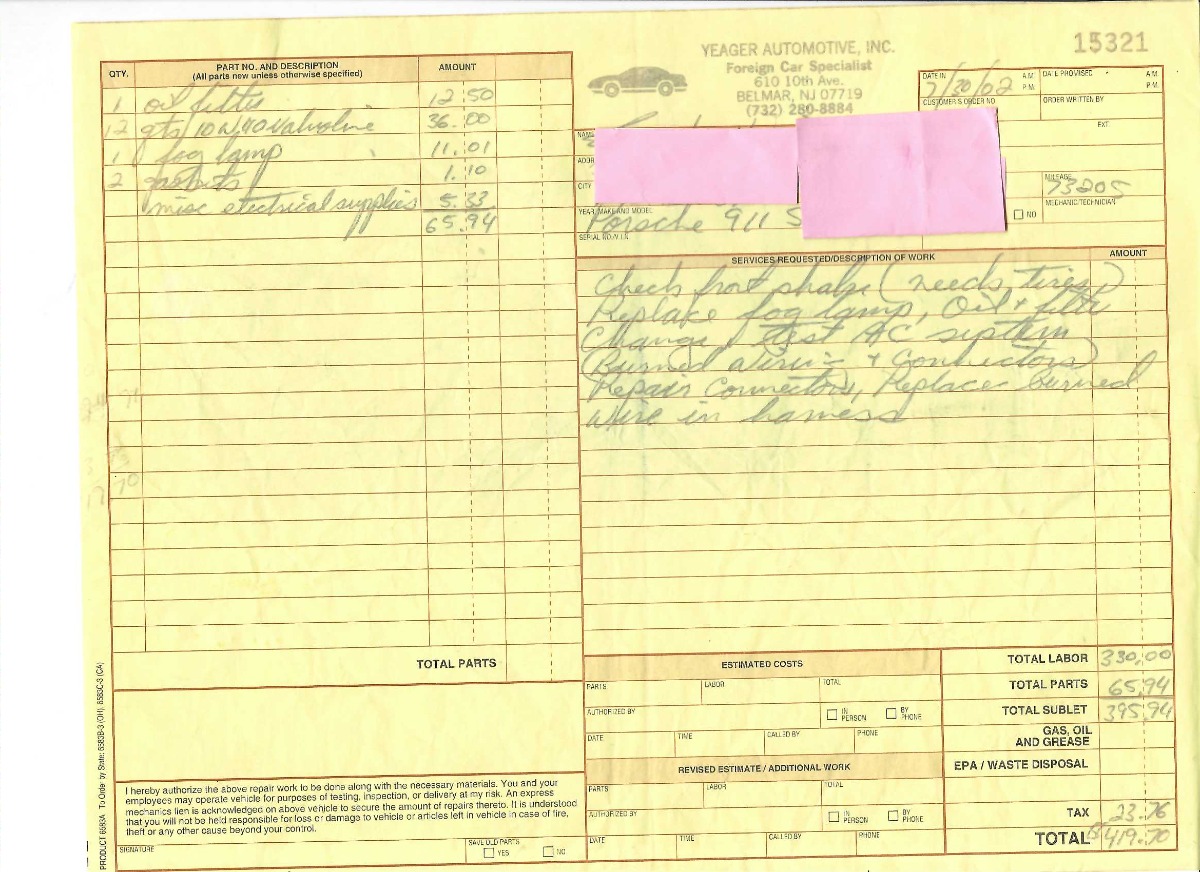 15321
YEAGER AUTOMOTIVE, INC.
Foreign Car Specialist
610 10th Ave.
BELMAR, NJ 07719
(732) 280-8884
DATE IN 7/30/02 A.M. P.M.
DATE PROMISED A.M. P.M.
CUSTOMER'S ORDER NO.
ORDER WRITTEN BY
EXT.
NAME
ADDR
CITY
MILEAGE 73205
MECHANIC/TECHNICIAN
NO
YEAR, MAKE AND MODEL
Porsche 911 S
SERIAL NO./V.I.N.
QTY. PART NO. AND DESCRIPTION AMOUNT
(All parts new unless otherwise specified)
1 oil filter 12.50
12 qts 10W40 Valvoline 36.00
1 fog lamp 11.01
2 gaskets 1.10
misc electrical supplies 5.33
65.94
TOTAL PARTS
SERVICES REQUESTED/DESCRIPTION OF WORK AMOUNT
Check front shake (needs tires)
Replace fog lamp, Oil + filter
Change, test AC system
(Burned wiring + Connectors)
Repair Connectors, Replace burned
wire in harness
ESTIMATED COSTS
PARTS LABOR TOTAL
AUTHORIZED BY IN PERSON BY PHONE
DATE TIME CALLED BY PHONE
REVISED ESTIMATE / ADDITIONAL WORK
PARTS LABOR TOTAL
AUTHORIZED BY IN PERSON BY PHONE
DATE TIME CALLED BY PHONE
TOTAL LABOR 330.00
TOTAL PARTS 65.94
TOTAL SUBLET 395.94
GAS, OIL AND GREASE
EPA / WASTE DISPOSAL
TAX 23.76
TOTAL 419.70
I hereby authorize the above repair work to be done along with the necessary materials. You and your
employees may operate vehicle for purposes of testing, inspection, or delivery at my risk. An express
mechanics lien is acknowledged on above vehicle to secure the amount of repairs thereto. It is understood
that you will not be held responsible for loss or damage to vehicle or articles left in vehicle in case of fire,
theft or any other cause beyond your control.
SIGNATURE
SAVE OLD PARTS
YES NO
PRODUCT 6583A To Order by State: 6583B-3 (OH), 6583C-3 (CA)